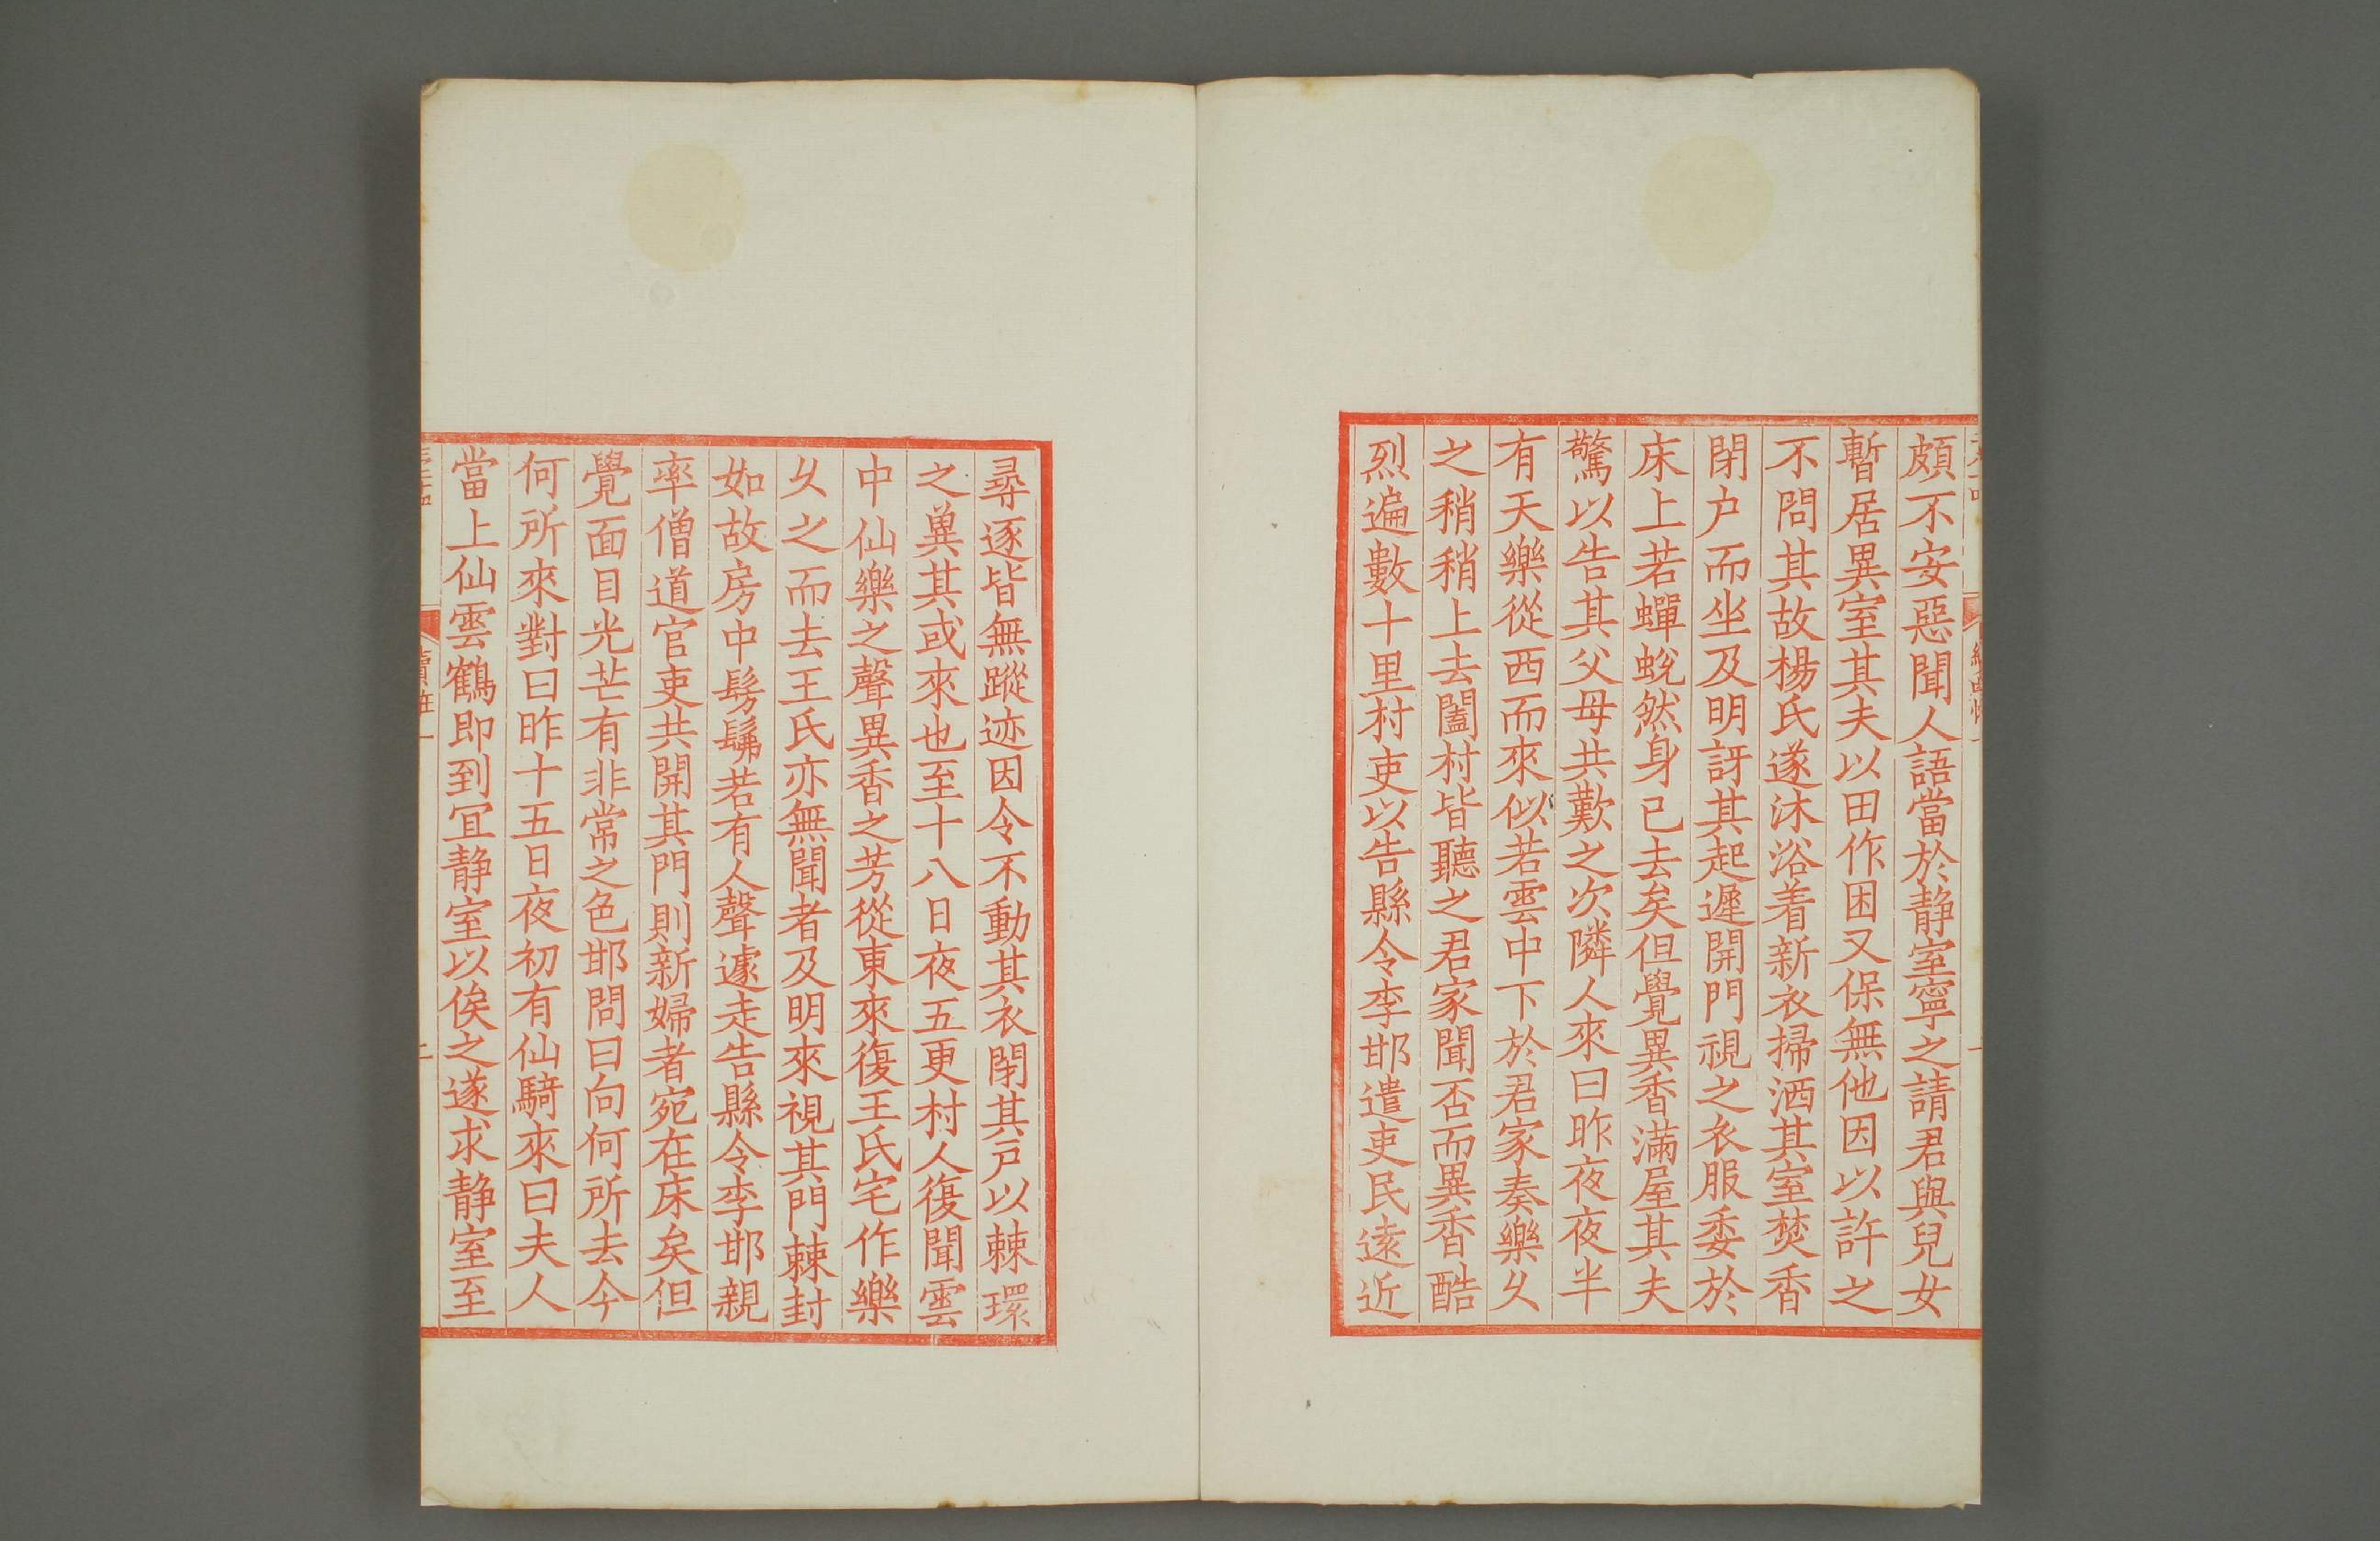 頗不安惡聞人語當於静室寧之請君與兒女
暫居異室其夫以田作困又保無他因以許之
不問其故楊氏遂沐浴着新衣掃洒其室焚香
閉户而坐及明訝其起遲開門視之衣服委於
床上若蟬蛻然身已去矣但覺異香滿屋其夫
驚以告其父母共歎之次隣人來曰昨夜夜半
有天樂從西而來似若雲中下於君家奏樂乆
之稍稍上去闔村皆聽之君家聞否而異香酷
烈遍數十里村吏以告縣令李邯遣吏民逺近
尋逐皆無蹤迹因令不動其衣閉其戸以棘環
之兾其或來也至十八日夜五更村人復聞雲
中仙樂之聲異香之芳從東來復王氏宅作樂
乆之而去王氏亦無聞者及明來視其門棘封
如故房中髣髴若有人聲遽走告縣令李邯親
率僧道官吏共開其門則新婦者宛在床矣但
覺面目光芒有非常之色邯問曰向何所去今
何所來對曰昨十五日夜初有仙騎來曰夫人
當上仙雲鶴即到冝静室以俟之遂求静室至